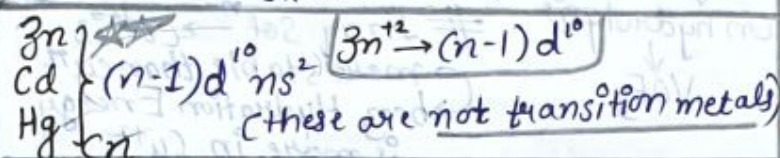 Zn
Cd } (n-1)d¹⁰ns²
Hg
Cn
Zn⁺² → (n-1)d¹⁰
(these are not transition metals)